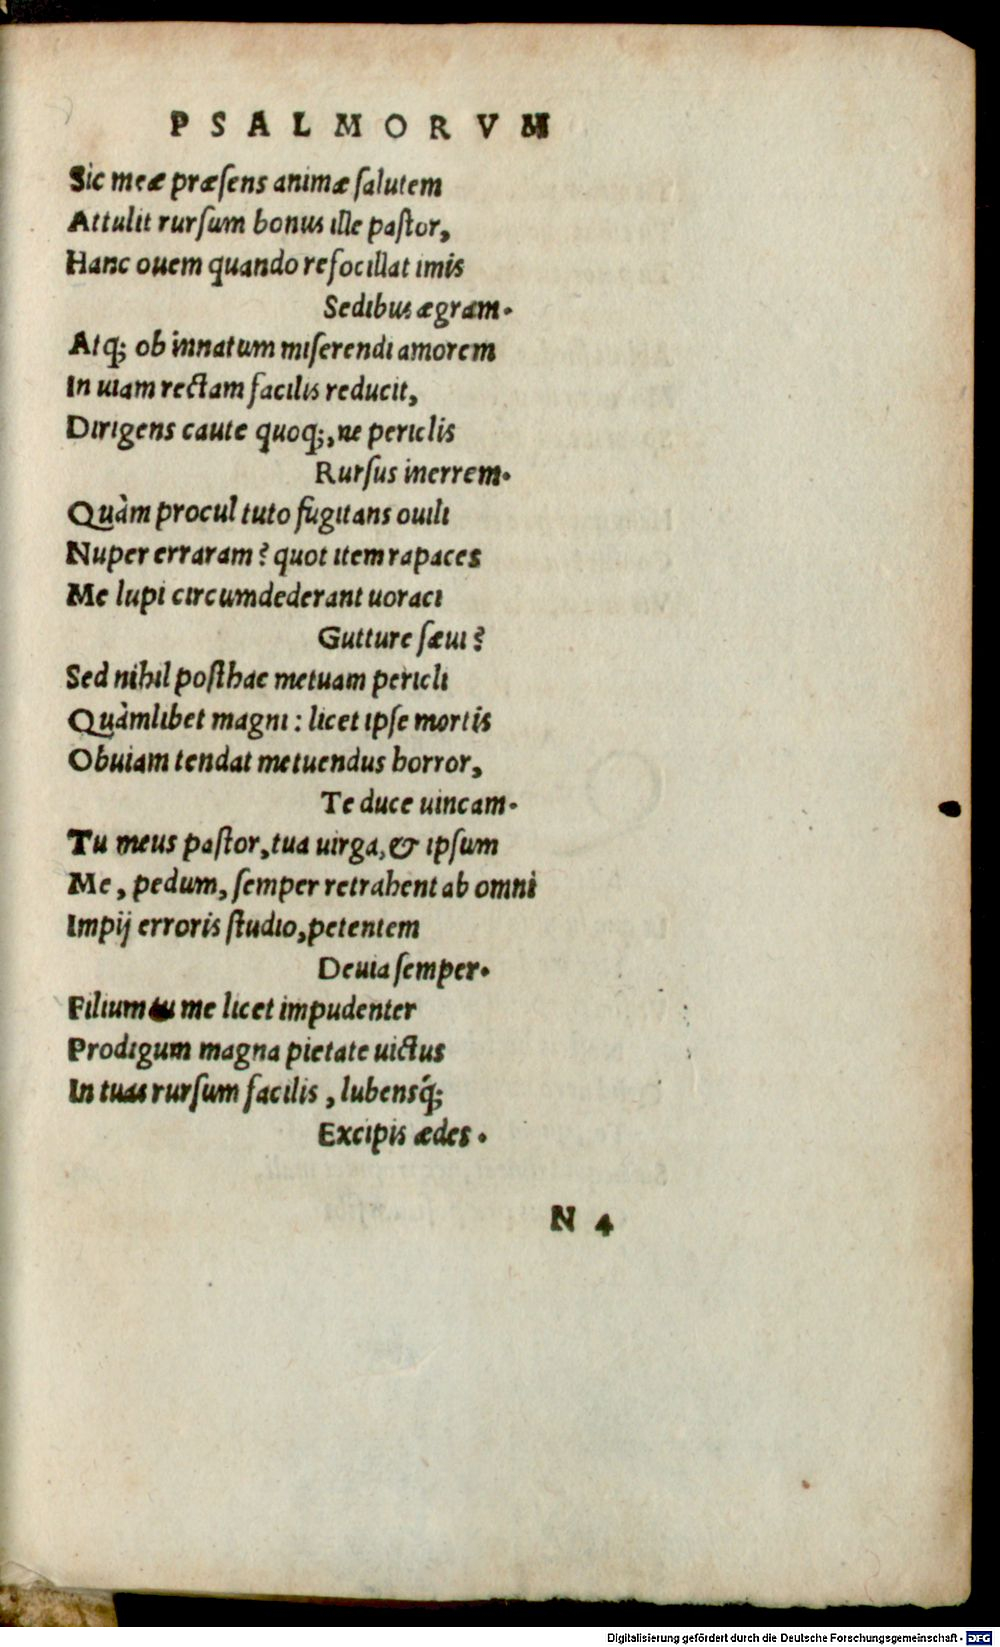 PSALMORVM
Sic meæ præſens animæ ſalutem
Attulit rurſum bonus ille paſtor,
Hanc ouem quando refocillat imis
Sedibus ægram.
Atq; ob innatum miſerendi amorem
In uiam rectam facilis reducit,
Dirigens caute quoq;, ne periclis
Rurſus inerrem.
Quàm procul tuto fugitans ouili
Nuper erraram? quot item rapaces
Me lupi circumdederant uoraci
Gutture ſæui?
Sed nihil poſthac metuam pericli
Quàmlibet magni: licet ipſe mortis
Obuiam tendat metuendus horror,
Te duce uincam.
Tu meus paſtor, tua uirga, & ipſum
Me, pedum, ſemper retrahent ab omni
Impij erroris ſtudio, petentem
Deuia ſemper.
Filium tu me licet impudenter
Prodigum magna pietate uictus
In tuas rurſum facilis, lubensq́;
Excipis ædes.
N 4
Digitalisierung gefördert durch die Deutsche Forschungsgemeinschaft - DFG